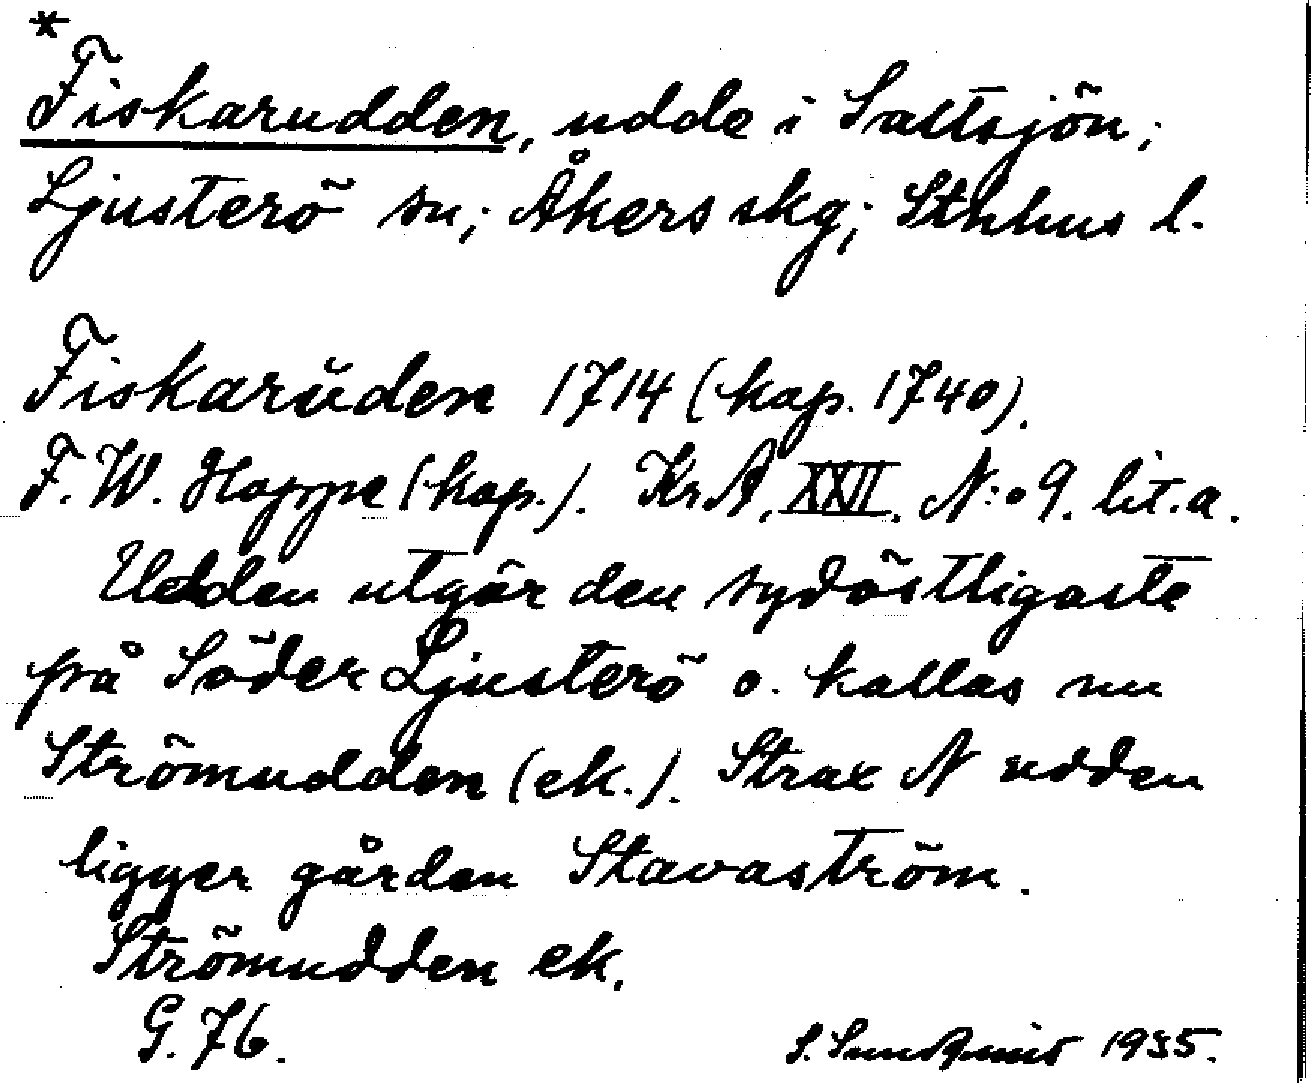 *
Fiskarudden, udde i Saltsjön;
Ljusterö sn; Åkers skg; Sthhus l.
Fiskarŭden 1714 (kap. 1740).
F. W. Hoppe (kap.). Kr.A. XXII. N:o 9. lit. a.
Udden utgör den sydöstligaste
på Söder Ljusterö o. kallas nu
Strömudden (ek.). Strax N udden
ligger gården Stavaström.
Strömudden ek.
G. 76.
S. Sundqvist 1935.